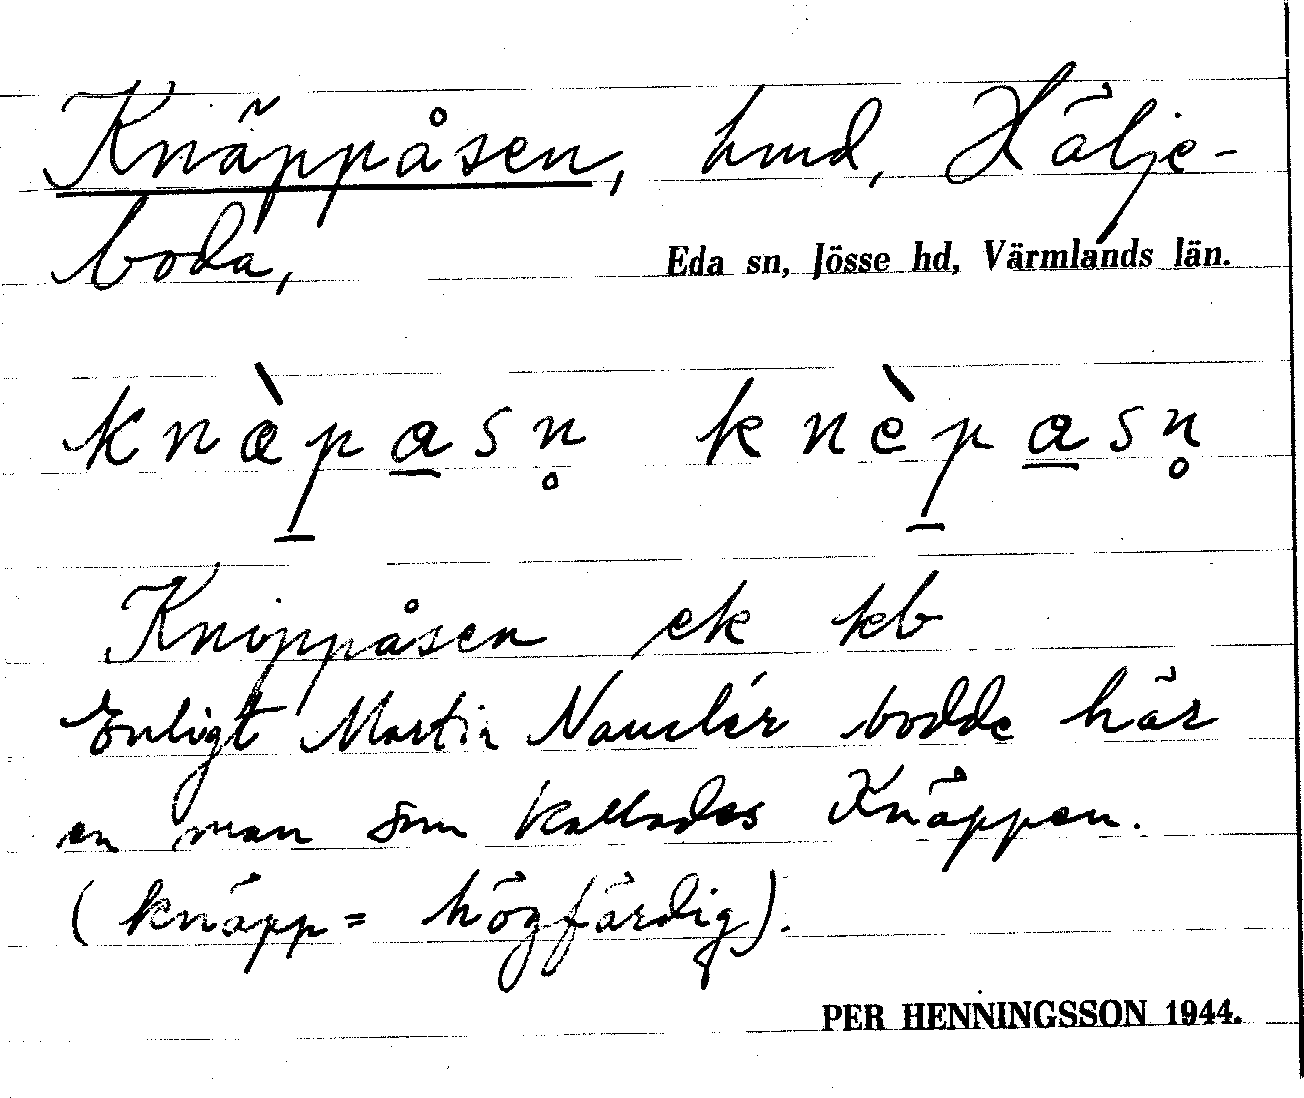 Knäppåsen, hmd, Hälje-
boda,
Eda sn, Jösse hd, Värmlands län.
knæ̀p̱a̱sn̥ knèp̱a̱sn̥
Knippåsen ek kb
Enligt Martin Nauclér bodde här
en man som kallades Knäppen.
(knäpp = högfärdig).
PER HENNINGSSON 1944.